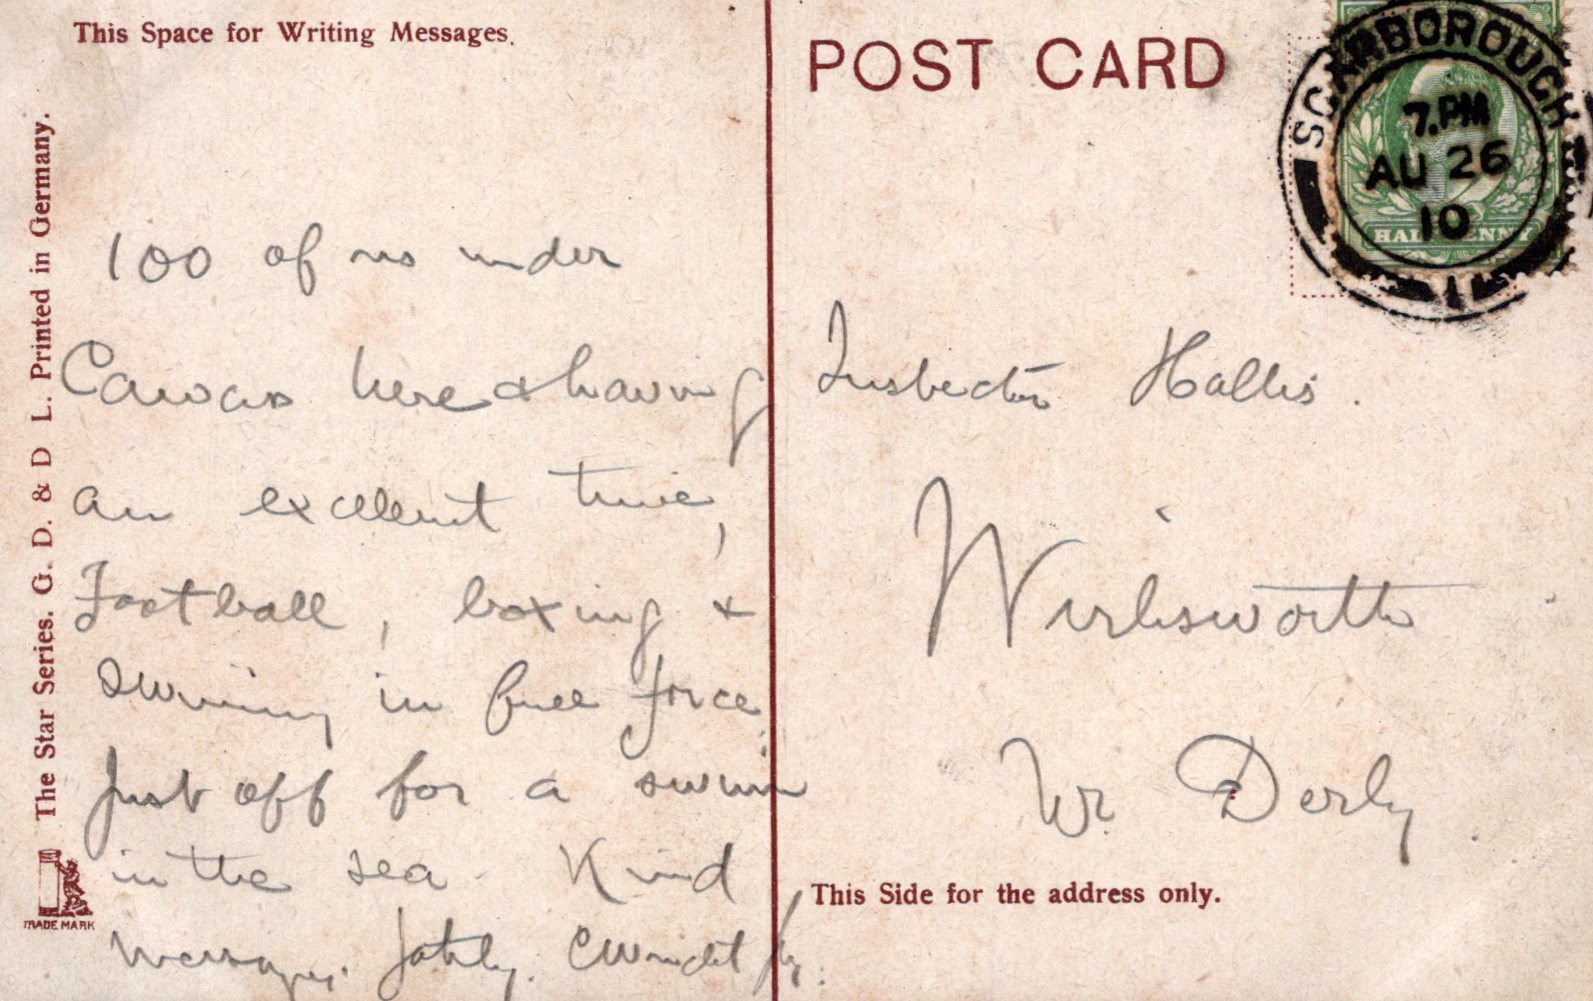 This Space for Writing Messages.
100 of us under
Canvas here & having
an excellent time,
Football, boxing &
swiming in full force
Just off for a swim
in the sea. Kind
messages.
The Star Series. G. D. & D L. Printed in Germany.
TRADE MARK
POST CARD
SCARBOROUGH
7.PM
AU 26
10
HALFPENNY
1
Inspector Hallis.
Wirksworth
Nr. Derby.
This Side for the address only.